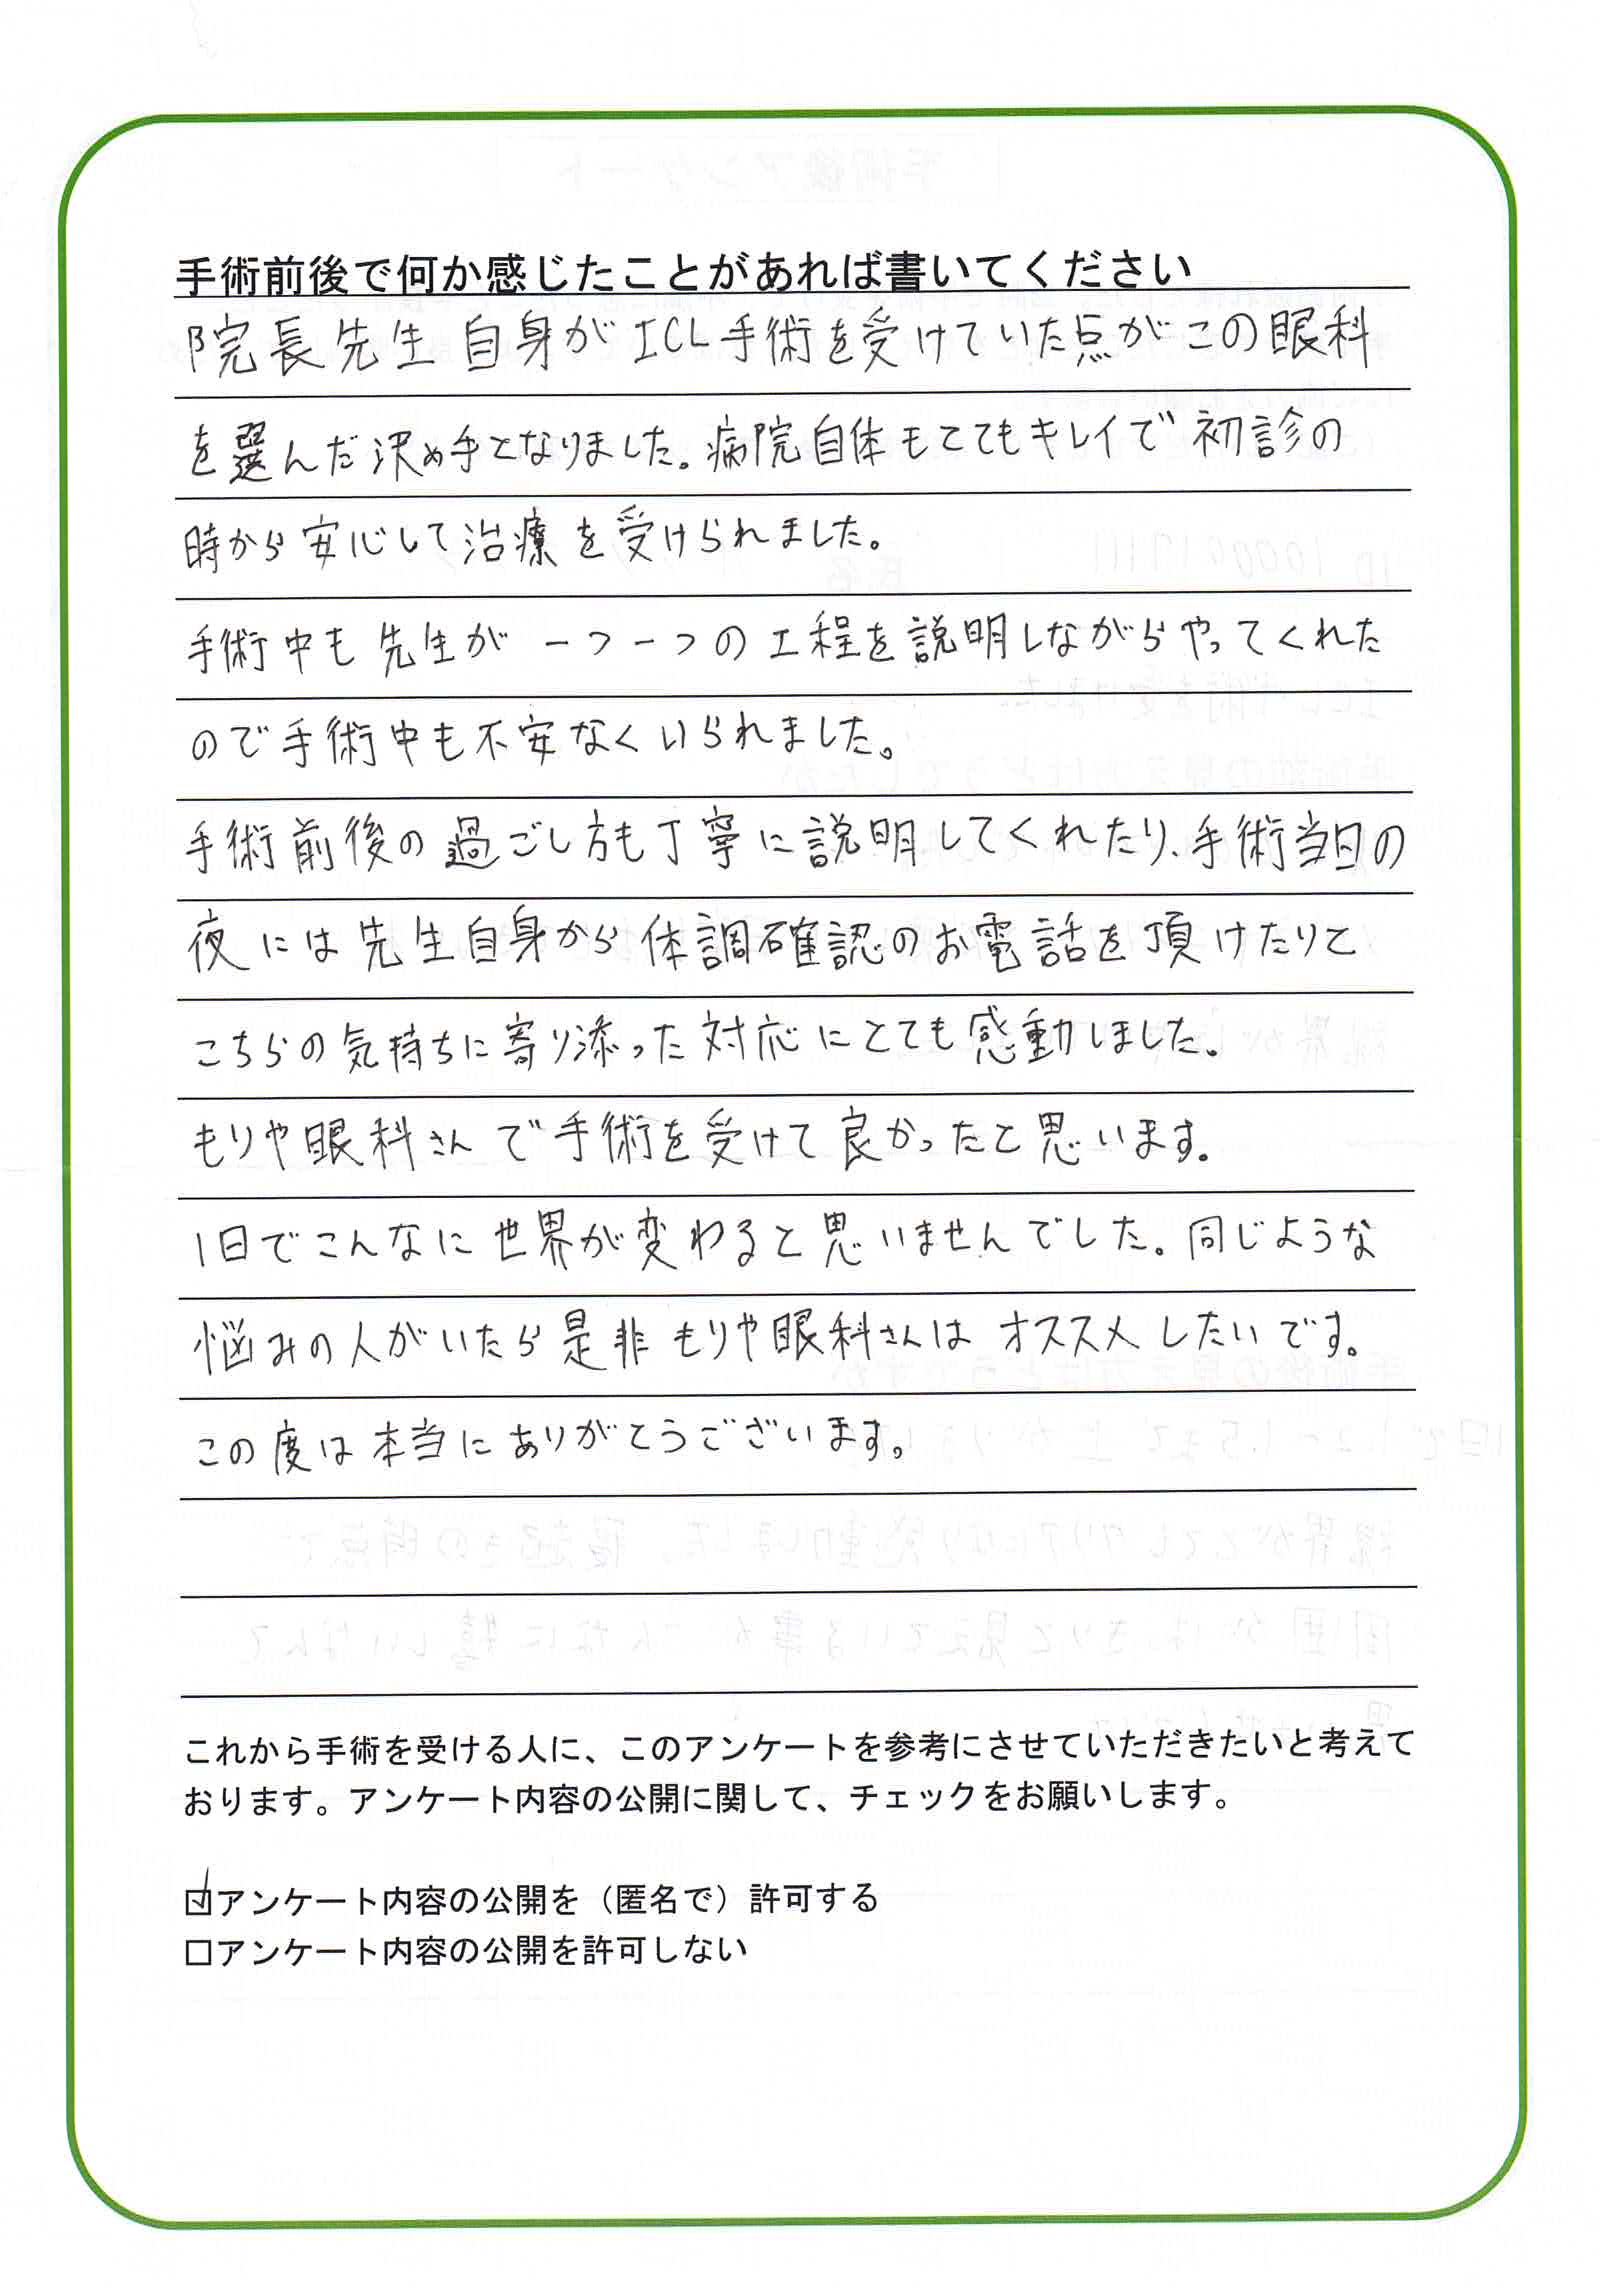 手術前後で何か感じたことがあれば書いてください
院長先生自身がICL手術を受けていた点がこの眼科
を選んだ決め手となりました。病院自体もとてもキレイで初診の
時から安心して治療を受けられました。
手術中も先生が一つ一つの工程を説明しながらやってくれた
ので手術中も不安なくいられました。
手術前後の過ごし方も丁寧に説明してくれたり、手術当日の
夜には先生自身から体調確認のお電話を頂けたりと
こちらの気持ちに寄り添った対応にとても感動しました。
もりや眼科さんで手術を受けて良かったと思います。
1日でこんなに世界が変わると思いませんでした。同じような
悩みの人がいたら是非もりや眼科さんはオススメしたいです。
この度は本当にありがとうございます。
これから手術を受ける人に、このアンケートを参考にさせていただきたいと考えて
おります。アンケート内容の公開に関して、チェックをお願いします。
☑アンケート内容の公開を（匿名で）許可する
□アンケート内容の公開を許可しない